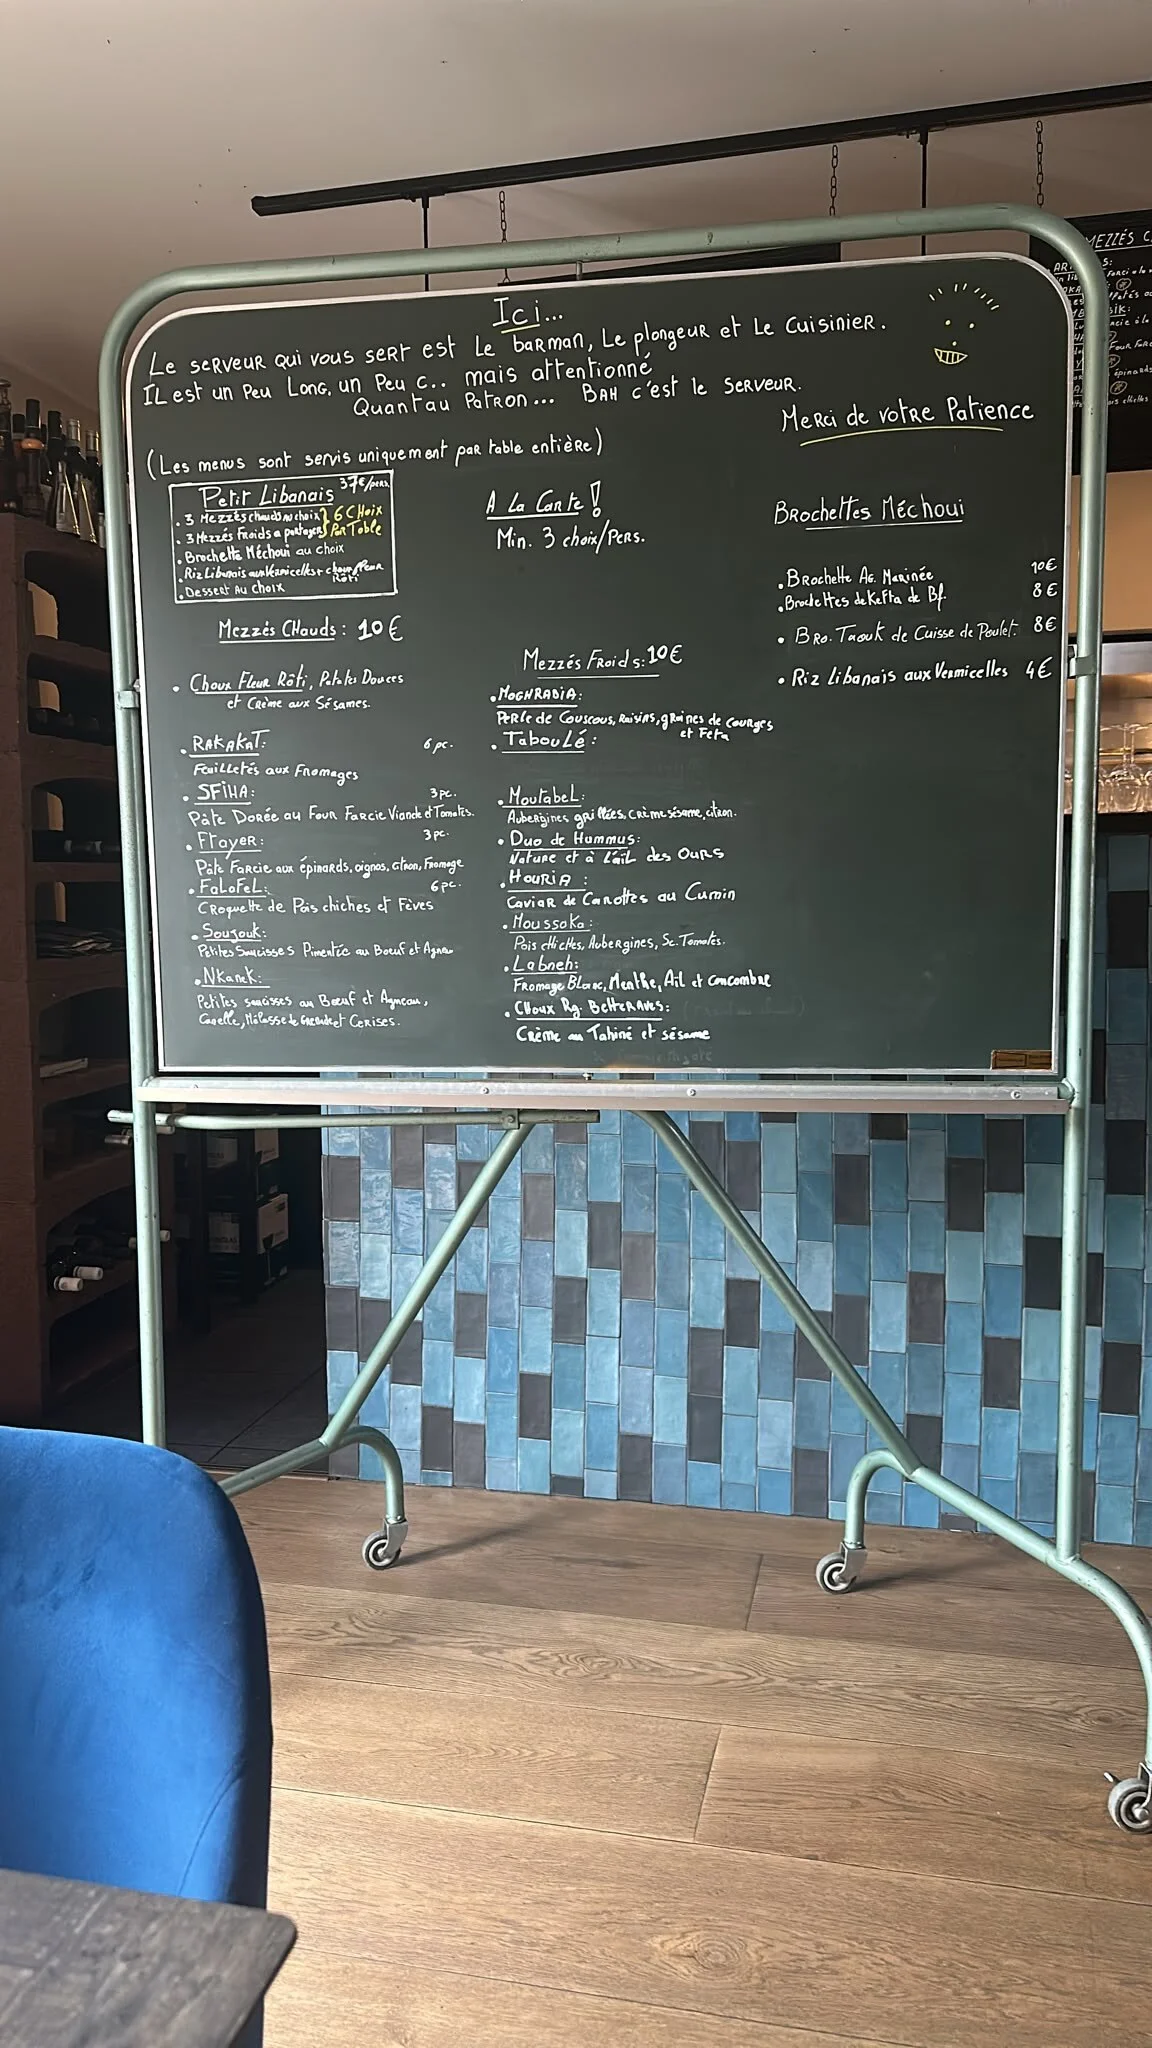 Ici...
Le serveur qui vous sert est Le barman, Le plongeur et Le Cuisinier.
IL est un Peu Long, un Peu c.. mais attentionné
Quantau Patron... Bah c'est le Serveur.
Merci de votre Patience
(Les menus sont servis uniquement par table entière)
Petit Libanais 37€/pers.
. 3 Mezzés chauds au choix } 6 CHoix
. 3 Mezzés Froids a partager } Par Table
. Brochette Méchoui au choix
. Riz Libanais aux Vermicelles + choux Fleur
Rôti
. Dessert Au Choix
Mezzés Chauds : 10€
. Choux Fleur Rôti, Patates Douces
et Crème aux Sésames.
. RAKAKAT: 6 pc.
Feuilletés aux Fromages
. SFIHA: 3 pc.
Pâte Dorée au Four Farcie Viande et Tomates.
. Ftayer: 3 pc.
Pâte Farcie aux épinards, oignos, citron, Fromage
. FaLoFeL: 6 pc.
Croquette de Pois chiches et Fèves
. Soujouk:
Petites Saucisses Pimentée au Boeuf et Agneau
. Nkanek:
Petites saucisses au Boeuf et Agneau,
Canelle, Mélasse de Grenade et Cerises.
A La Carte !
Min. 3 choix/Pers.
Mezzés Froids: 10€
. MOGHRABIA:
Perle de Couscous, Raisins, graines de Courges
et Feta
. Taboulé :
. Moutabel:
Aubergines grillées, crème sésame, citron.
. Duo de Hummus:
Nature et à L'ail des Ours
. HOURIA :
Caviar de Carottes au Cumin
. Moussaka:
Pois chiches, Aubergines, Sc. Tomates.
. Labneh:
Fromage Blanc, Menthe, Ail et concombre
. CHoux Rg. BetteRaves:
Crème au Tahiné et sésame
Brochettes Méchoui
. Brochette Ag. Marinée 10€
. Brochettes de Kefta de Bf. 8€
. Bro. Taouk de Cuisse de Poulet. 8€
. Riz Libanais aux Vermicelles 4€
MEZZÉS C